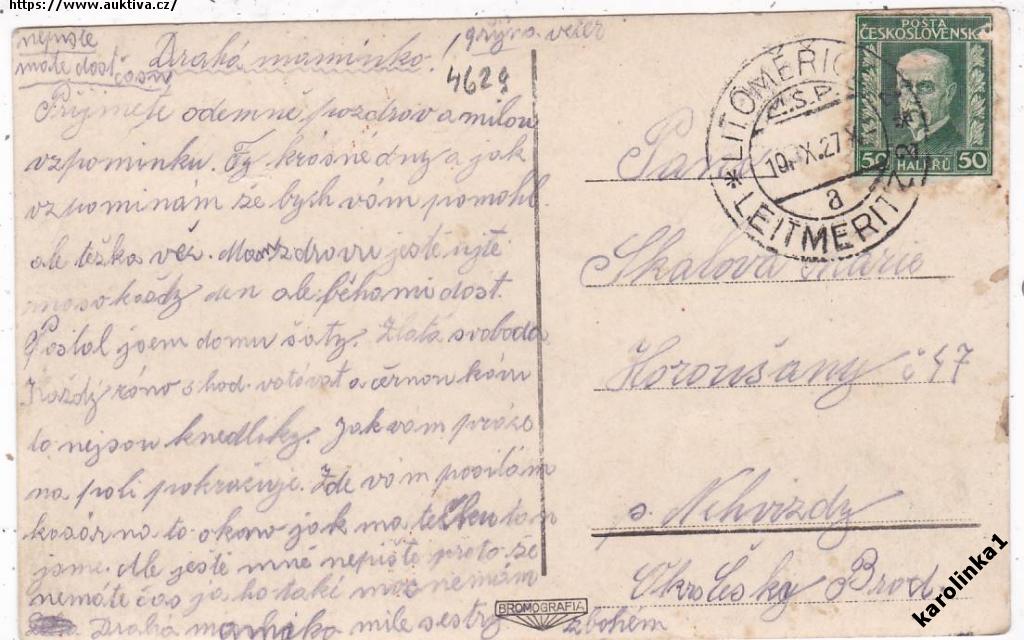 https://www.auktiva.cz/
nepište
máte dost
času
Drahá maminko!
4629
Přijmete odemne pozdrov a milou
vzpomínku. Ty krásné dny a jak
vzpomínám že bych vám pomohl.
ale těžka věc. zdrovi jeste ujte
maso každy den ale běhami dost.
Poslal jsem domu šaty. Zlatá svoboda
Každý ráno 5 hod. votávat a černou kávu
to nejsou knedliky. Jak vám práce
na poli pokračuje. Zde vám posílám
kasárna to okno jak ma ten
jsme. Ale jeste mně nepište proto že
nemáte čas ja ho také moc nemám
Drahá maminko mile sestry zbohém
BROMOGRAFIA
POŠTA
ČESKOSLOVENSKÁ
50 HALÉŘŮ 50
LITOMĚŘICE
LEITMERITZ
19.IX.27
a
Paní
Skalová Marie
Horoušany č 47
s. Nehvizdy
Okr. Česky Brod
karolinka1